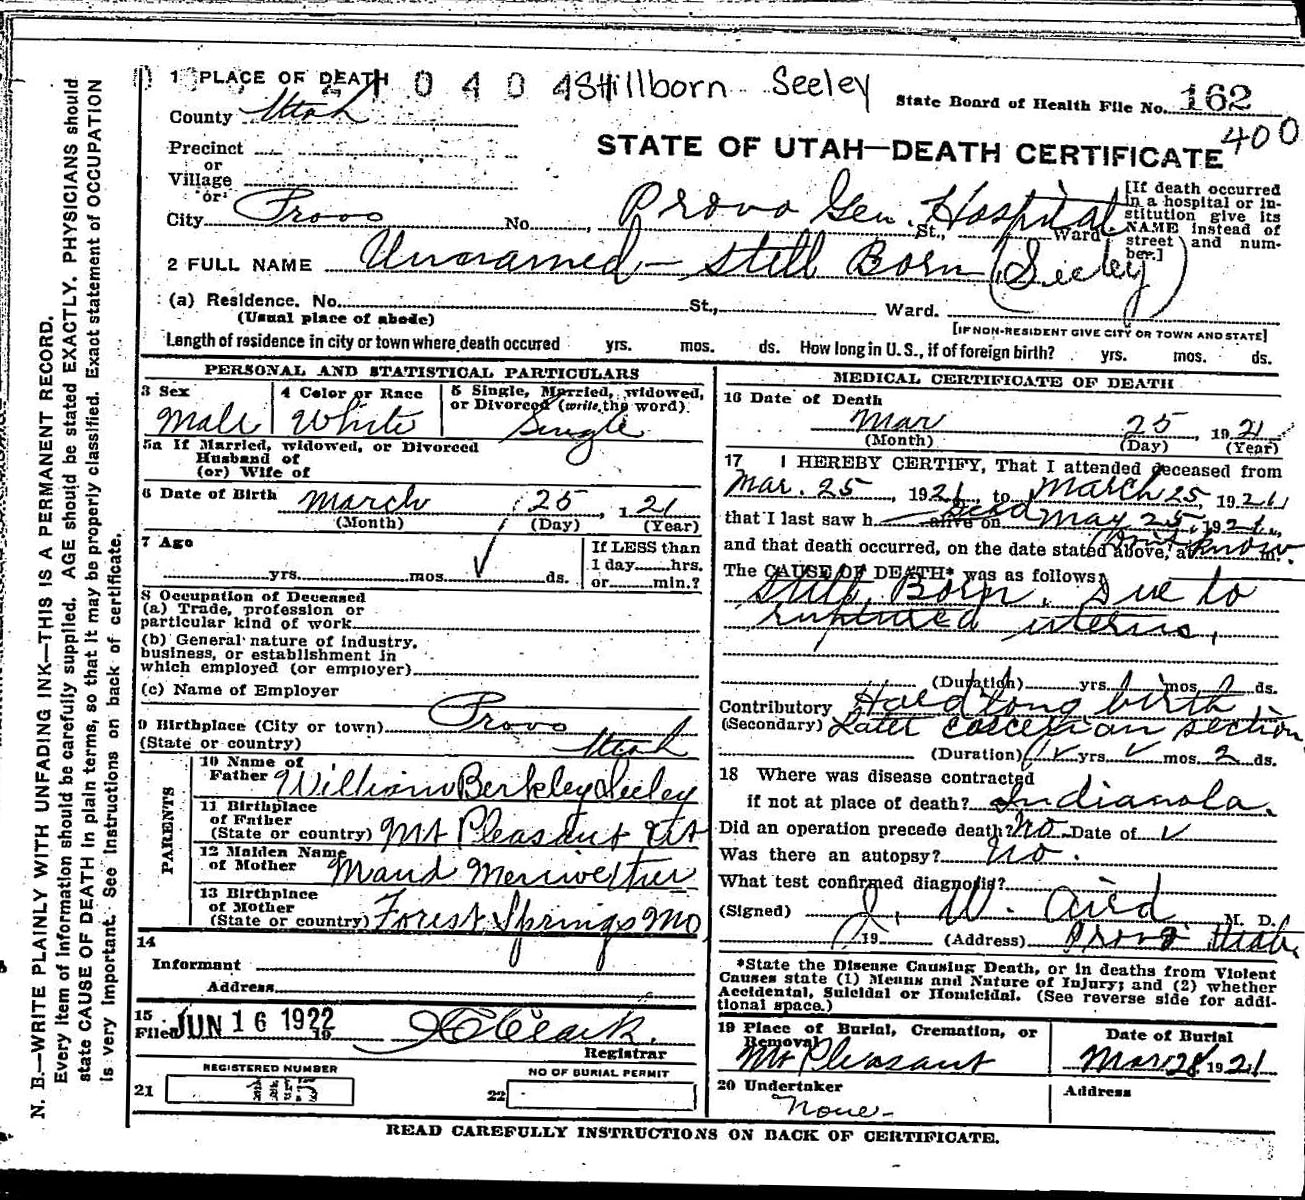 1 PLACE OF DEATH 0 4 0 4 Stillborn Seeley
State Board of Health File No. 162
400
County Utah
STATE OF UTAH—DEATH CERTIFICATE
Precinct
or
Village
or
City Provo No. , Provo Gen. Hospital St., Ward
[If death occurred in a hospital or institution give its NAME instead of street and number.]
2 FULL NAME Unnamed - Still Born (Seeley)
(a) Residence. No. St., Ward.
(Usual place of abode)
[IF NON-RESIDENT GIVE CITY OR TOWN AND STATE]
Length of residence in city or town where death occured yrs. mos. ds. How long in U. S., if of foreign birth? yrs. mos. ds.
PERSONAL AND STATISTICAL PARTICULARS
3 Sex
Male
4 Color or Race
White
5 Single, Married, widowed,
or Divorced (write the word)
Single
5a If Married, widowed, or Divorced
Husband of
(or) Wife of
6 Date of Birth March 25, 1 21
(Month) (Day) (Year)
7 Age
yrs. mos. ds.
If LESS than
1 day hrs.
or min.?
8 Occupation of Deceased
(a) Trade, profession or
particular kind of work
(b) General nature of industry,
business, or establishment in
which employed (or employer)
(c) Name of Employer
9 Birthplace (City or town) Provo
(State or country) Utah
PARENTS
10 Name of
Father William Berkley Seeley
11 Birthplace
of Father
(State or country) Mt Pleasant Ut
12 Maiden Name
of Mother Maud Meriwether
13 Birthplace
of Mother
(State or country) Forest Springs Mo
14
Informant
Address
15
Filed JUN 16 1922 19
Clark.
Registrar
REGISTERED NUMBER
21
NO OF BURIAL PERMIT
22
MEDICAL CERTIFICATE OF DEATH
16 Date of Death
Mar 25, 1921
(Month) (Day) (Year)
17 I HEREBY CERTIFY, That I attended deceased from
Mar. 25, 1921, to March 25 1921,
that I last saw h alive on dead May 25, 1921,
and that death occurred, on the date stated above, at Dont know m.
The CAUSE OF DEATH* was as follows:
Still Born. Due to
ruptured uterus,
(Duration) yrs. mos. ds.
Contributory Had long birth
(Secondary) Later section
(Duration) yrs. mos. 2 ds.
18 Where was disease contracted
if not at place of death? Indianola.
Did an operation precede death? No Date of
Was there an autopsy? No.
What test confirmed diagnosis?
(Signed) J. W. Aird M. D.
, 19 (Address) Provo Utah.
*State the Disease Causing Death, or in deaths from Violent
Causes state (1) Means and Nature of Injury; and (2) whether
Accidental, Suicidal or Homicidal. (See reverse side for addi-
tional space.)
19 Place of Burial, Cremation, or
Removal
Mt Pleasant
Date of Burial
Mar 28 1921
20 Undertaker
None-
Address
READ CAREFULLY INSTRUCTIONS ON BACK OF CERTIFICATE.
N. B.—WRITE PLAINLY WITH UNFADING INK—THIS IS A PERMANENT RECORD.
Every item of information should be carefully supplied. AGE should be stated EXACTLY. PHYSICIANS should
state CAUSE OF DEATH in plain terms, so that it may be properly classified. Exact statement of OCCUPATION
is very important. See instructions on back of certificate.